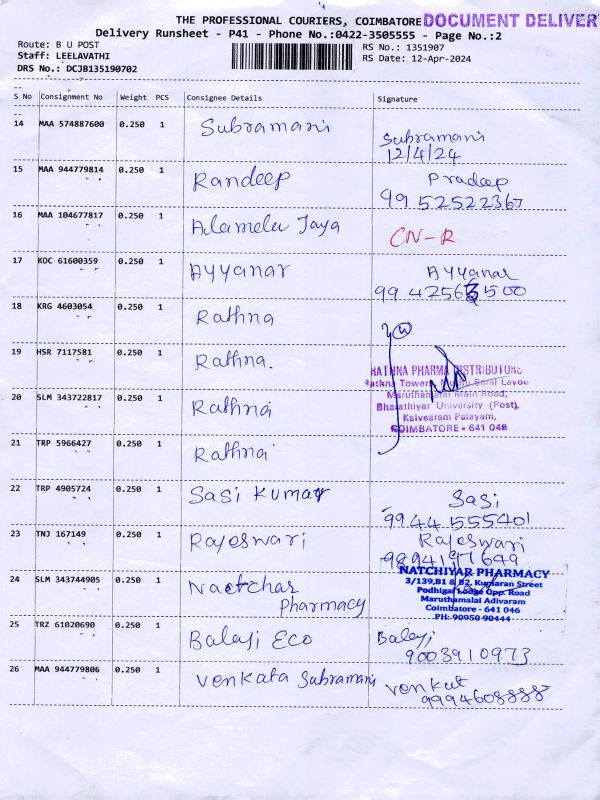 THE PROFESSIONAL COURIERS, COIMBATORE DOCUMENT DELIVER
Delivery Runsheet - P41 - Phone No.:0422-3505555 - Page No.:2
Route: B U POST
RS No.: 1351907
Staff: LEELAVATHI
RS Date: 12-Apr-2024
DRS No.: DCJB135190702
S No Consignment No Weight PCS Consignee Details Signature
14 MAA 574887600 0.250 1 Subramani Subramani
12/4/24
15 MAA 944779814 0.250 1 Randeep Pradeep
99 52522367
16 MAA 104677817 0.250 1 Alamelu Jaya CN-R
17 KOC 61600359 0.250 1 Ayyanar Ayyanar
99 4256 500
18 KRG 4603054 0.250 1 Rathna
19 HSR 7117581 0.250 1 Rathna.
RATHNA PHARMA DISTRIBUTORS
Rathna Towers, Layou
Maruthamalai Main Road,
20 SLM 343722817 0.250 1 Rathna
Bharathiyar University (Post),
Kalveeram Palayam,
COIMBATORE - 641 046
21 TRP 5966427 0.250 1 Rathna
22 TRP 4905724 0.250 1 Sasi Kumar Sasi
9944555401
23 TNJ 167149 0.250 1 Rajeswari Rajeswari
9894197649
24 SLM 343744905 0.250 1 Natchar
Pharmacy
NATCHIYAR PHARMACY
3/139,B1 & B2, Kumaran Street
Podhigai Lodge Opp. Road
Maruthamalai Adivaram
Coimbatore - 641 046
PH: 90950 90444
25 TRZ 61020690 0.250 1 Balaji Eco Balaji
9003910973
26 MAA 944779806 0.250 1 Venkata Subramani Venkat
9994608888